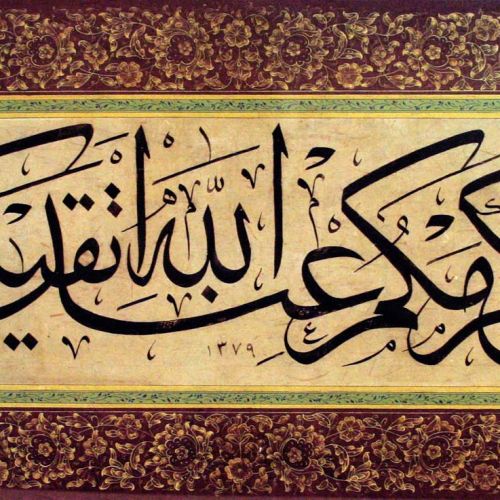 كرمكم عند الله اتقيك
١٣٧٩